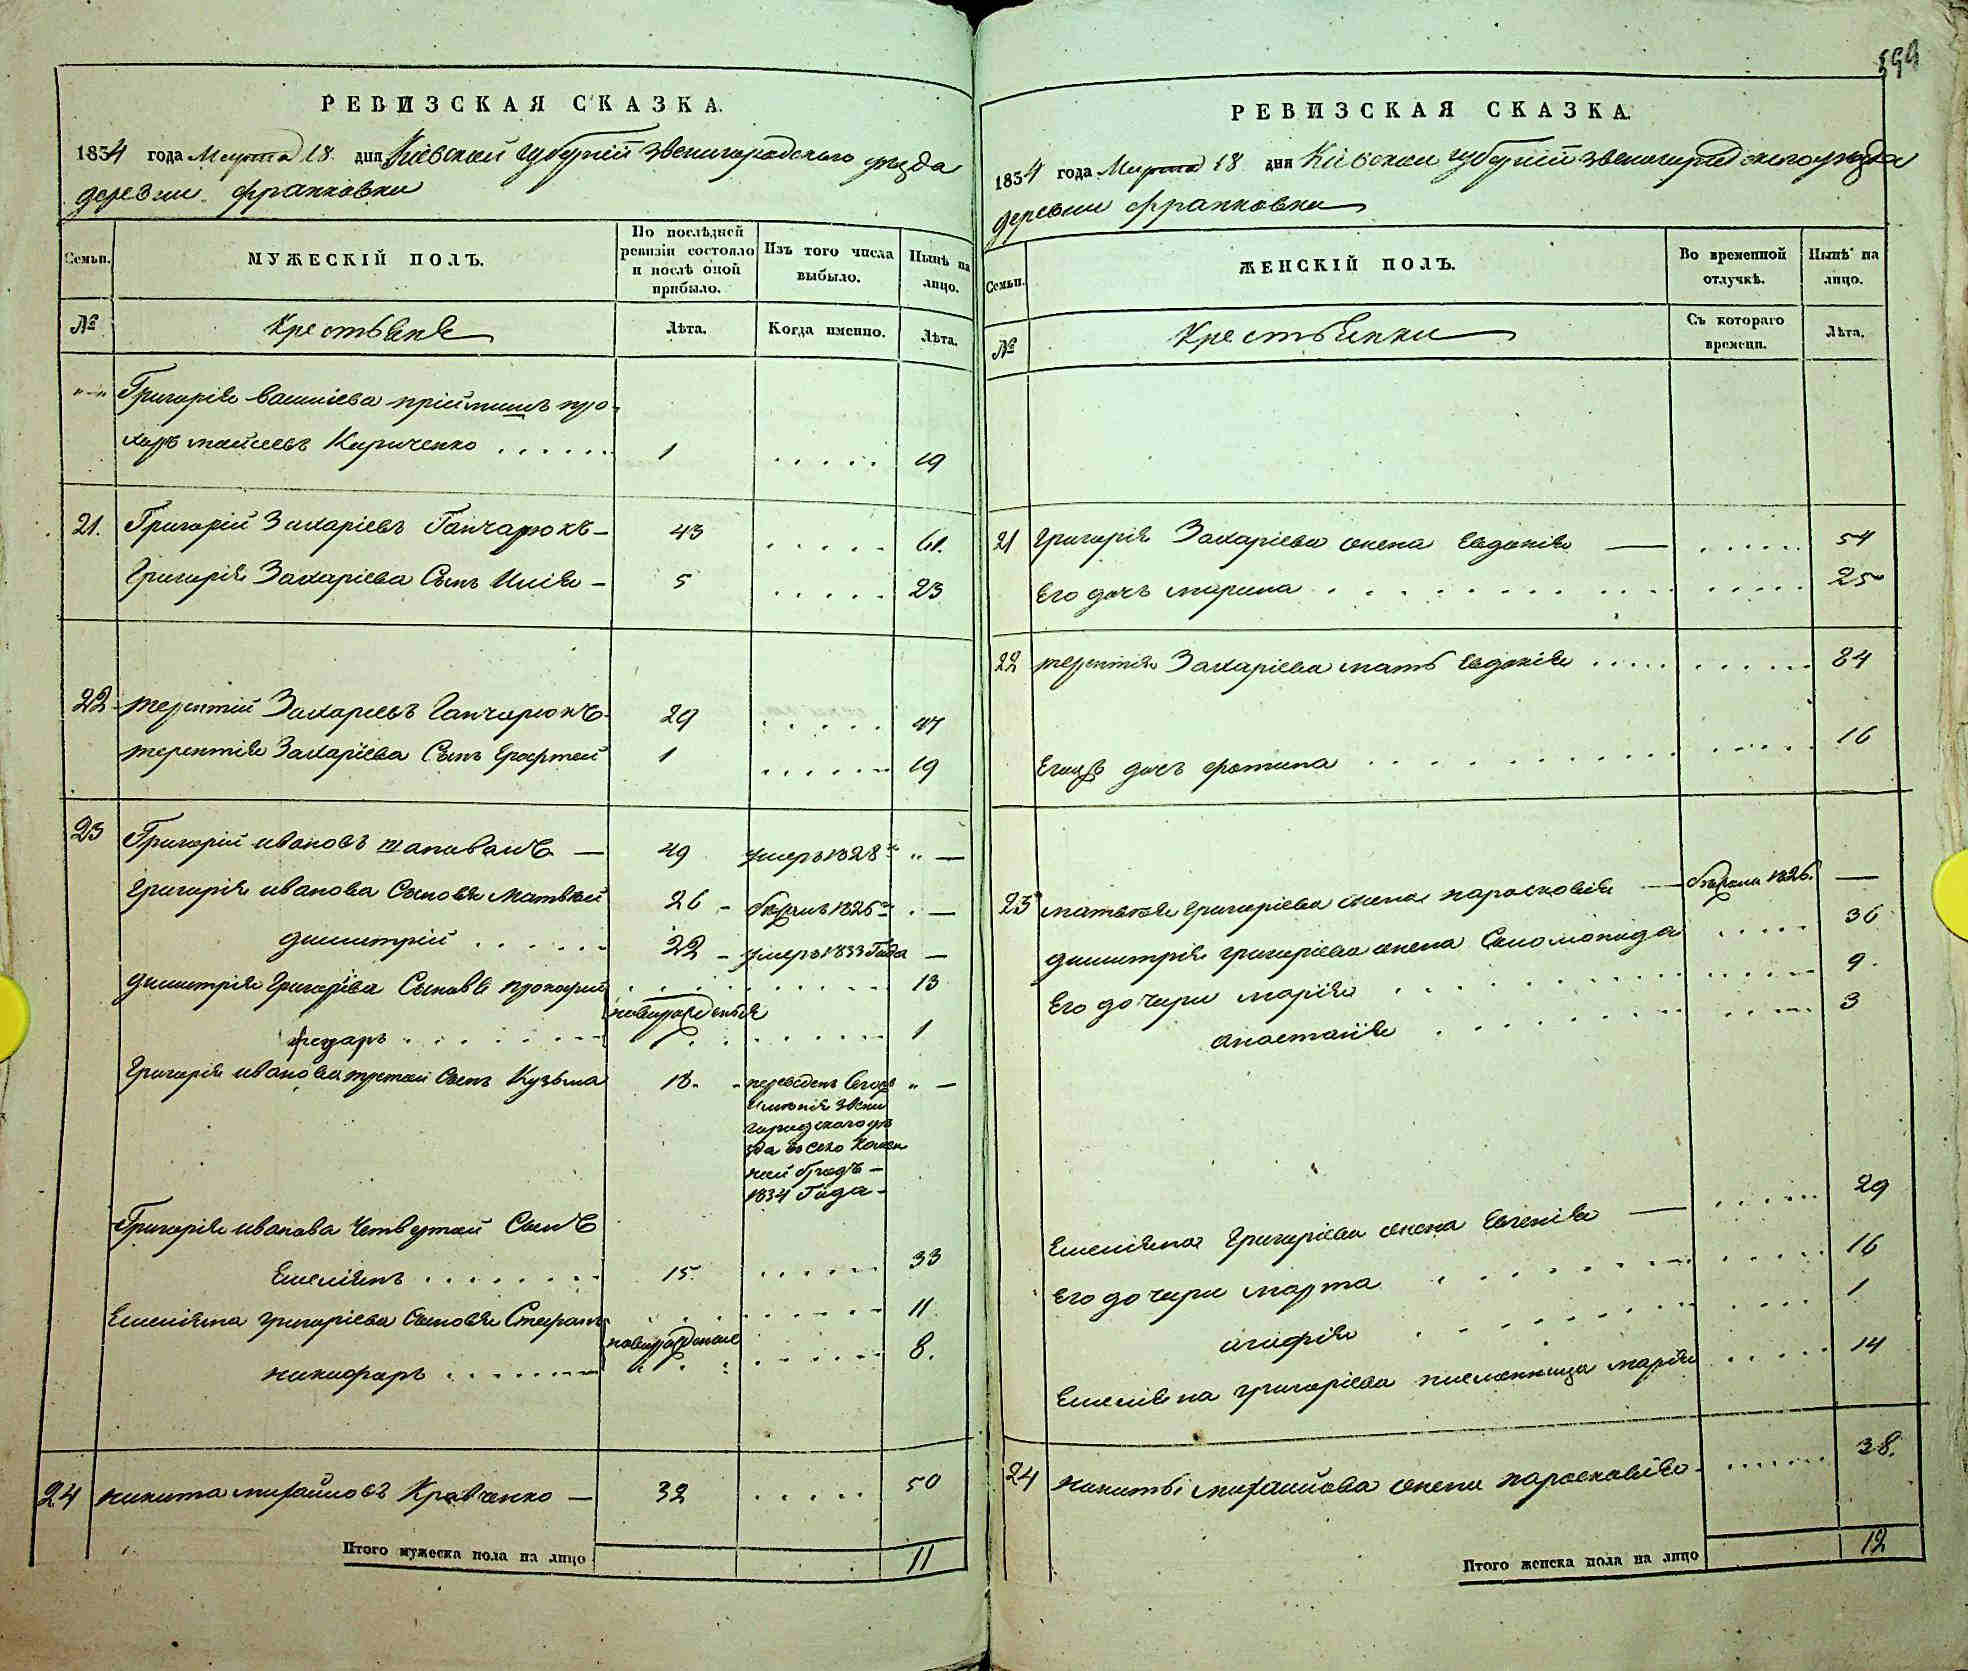 599
РЕВИЗСКАЯ СКАЗКА.
1834 года Марта 18 дня Кіевской губерніи Звенигородского уезда
деревни франковки
Семьи.
МУЖЕСКІЙ ПОЛЪ.
По послѣдней ревизіи состояло и послѣ оной прибыло.
Изъ того числа выбыло.
Нынѣ на лицо.
№
Крестьяне
Лѣта.
Когда именно.
Лѣта.
Григорія васильева пріймышъ про-
хоръ моисеевъ Кириченко 1 19
21. Григорій Захаріевъ Ганчарюкъ 43 61.
Григорія Захаріева Сынъ Илія 5 23
22 терентій Захаріевъ Ганчарюкъ 29 47
терентія Захаріева Сынъ Ерофтей 1 19
23 Григорій ивановъ шаповалъ 49 умеръ 1828 " —
Григорія иванова Сыновья матвѣй 26 - бѣжалъ 1826 —
димитрій 22 - умеръ 1833 Года —
димитрія Григоріева Сыновья прокофій 13
новорожденыя
федаръ 1
Григорія иванова третій Сынъ Кузьма 18 - переведенъ сего " —
Имѣнія звени
городского уѣ
зда въ село
бродъ —
1834 Года -
Григорія иванова Четвертой Сынъ
Емеліянъ 15 33
Емеліяна григоріева Сыновья Стефанъ 11.
новорожденые
никифаръ 8.
24 никита михайловъ Кравченко — 32 50
Итого мужеска пола на лицо 11
РЕВИЗСКАЯ СКАЗКА.
1834 года Марта 18 дня Кіевской губерніи звенигородского уезда
деревни франковки
Семьи.
ЖЕНСКІЙ ПОЛЪ.
Во временной отлучкѣ.
Нынѣ на лицо.
№
Крестьянки
Съ котораго времени.
Лѣта.
21 Григорія Захаріева жена Евдокія 54
Его дочъ марина 25
22 терентія Захаріева мать Евдокія 84
дочъ фотина 16
23 матвѣя григоріева жена парасковія — бѣжала 1826. —
димитрія григоріева жена Соломонида 36
Его дочери марія 9.
анастасія 3
Емеліяна Григоріева жена Евгенія 29
Его дочери марта 16
агафія 1
Емеліяна григоріева племянница марія 14
24 никиты михайлова жена параскавія 38.
Итого женска пола на лицо 12